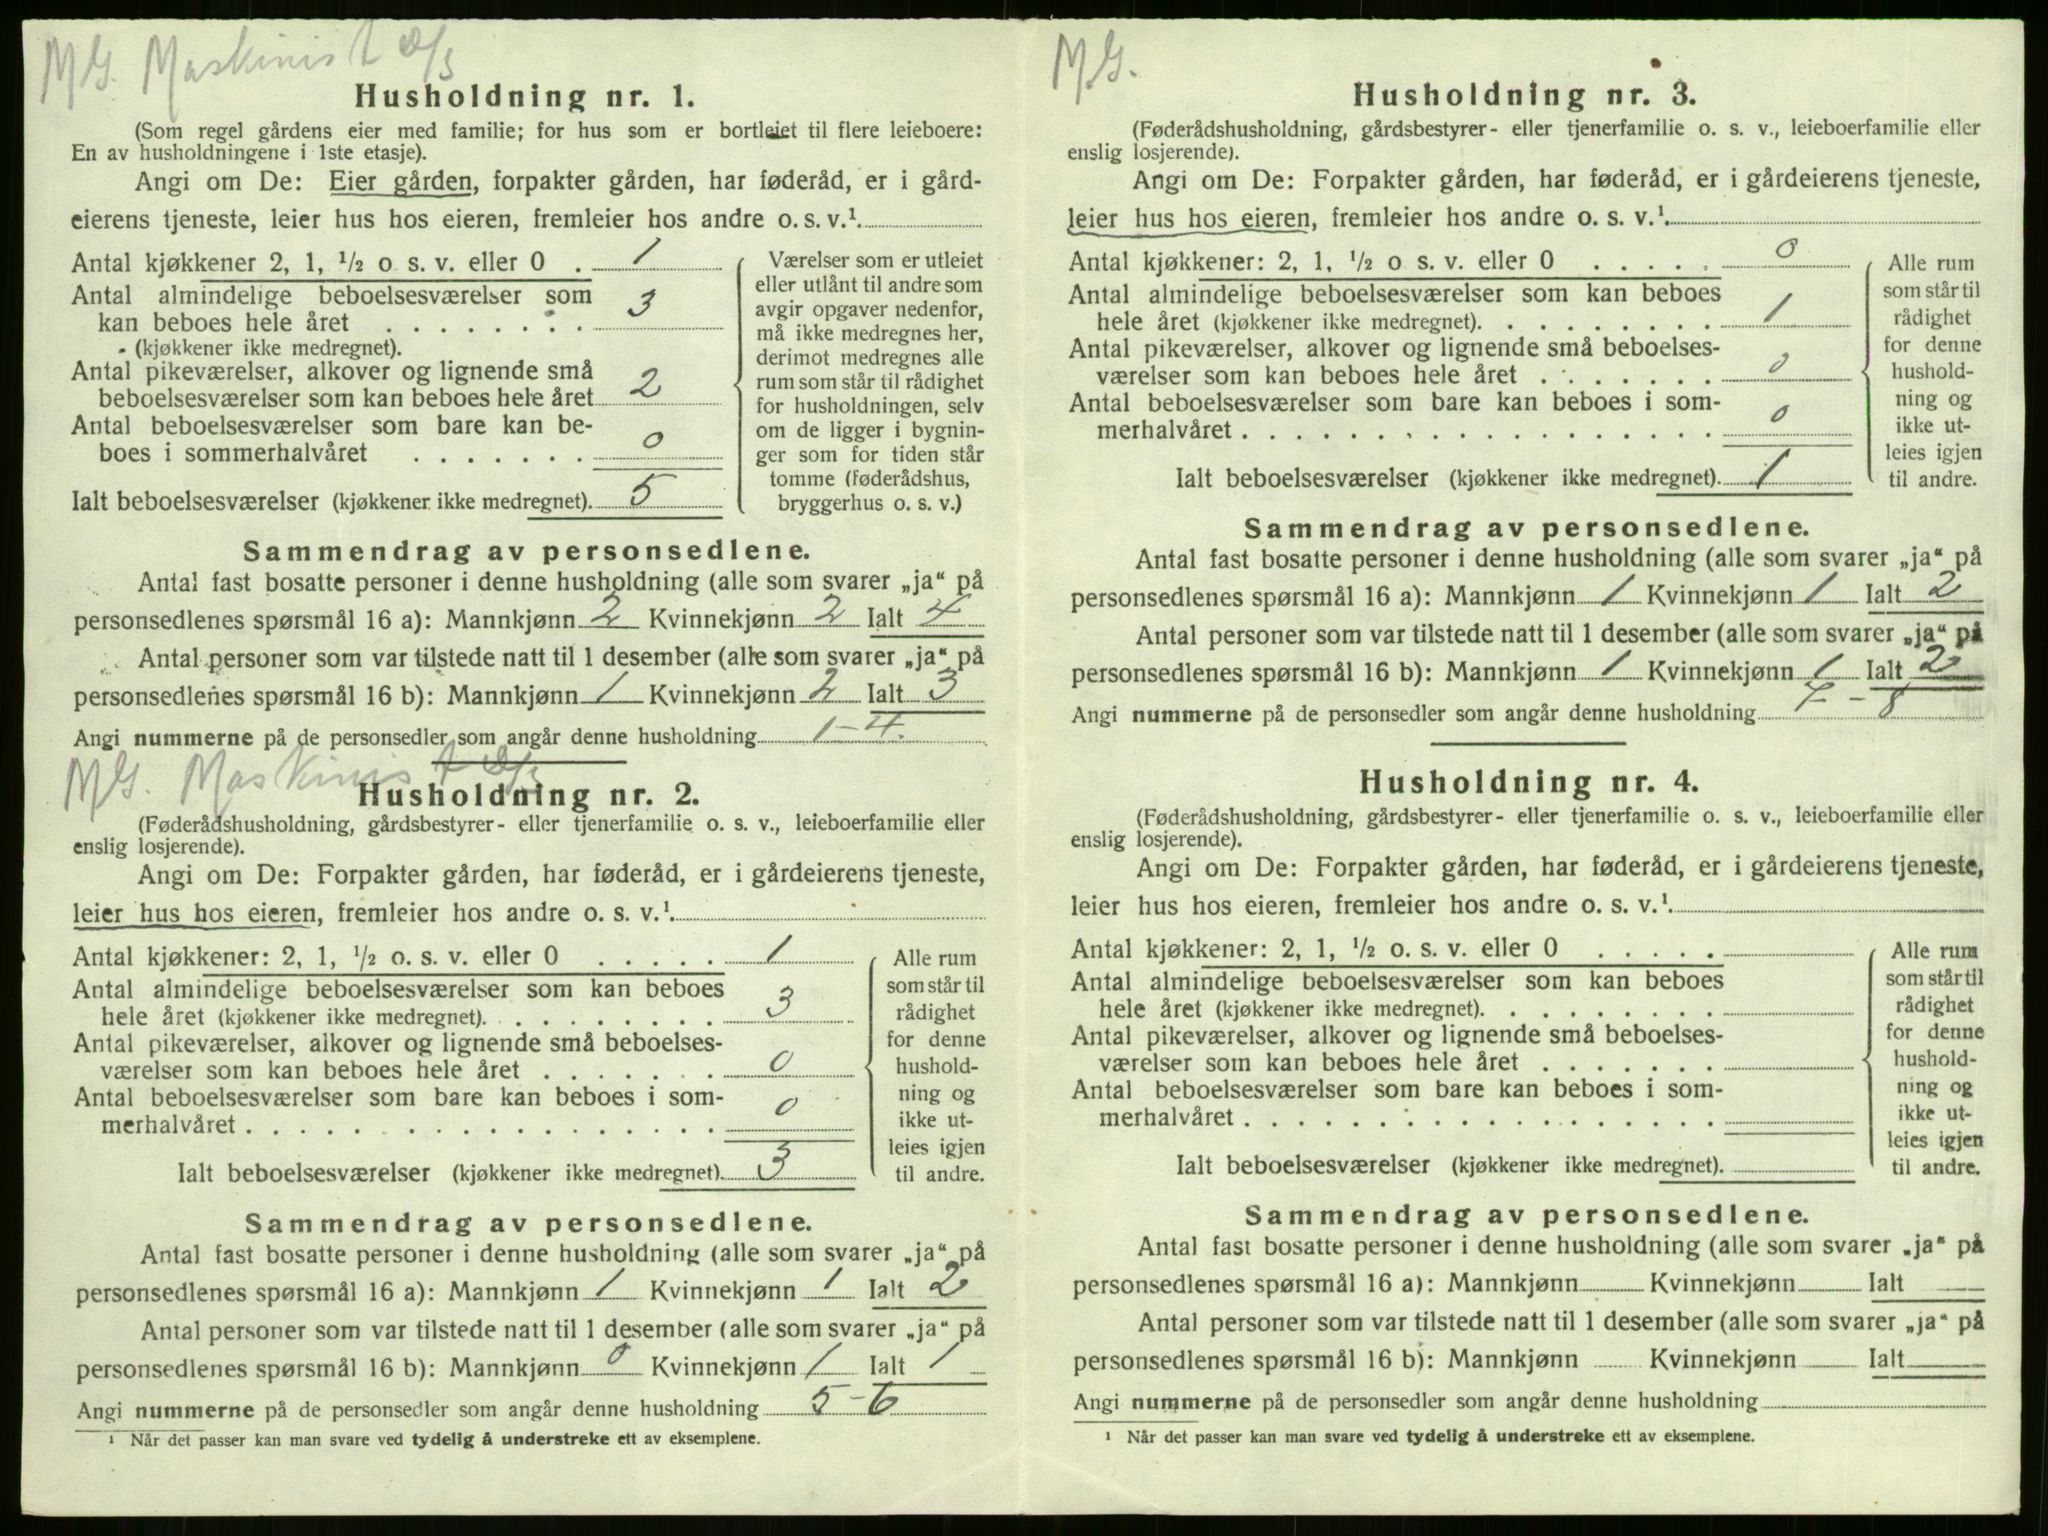 MG. Maskinist D/S
Husholdning nr. 1.
(Som regel gårdens eier med familie; for hus som er bortleiet til flere leieboere:
En av husholdningene i 1ste etasje).
Angi om De: Eier gården, forpakter gården, har føderåd, er i gård-
eierens tjeneste, leier hus hos eieren, fremleier hos andre o. s. v.¹.
Antal kjøkkener 2, 1, ½ o s. v. eller 0 . 1
Antal almindelige beboelsesværelser som
kan beboes hele året . . . . . . . . 3
(kjøkkener ikke medregnet).
Antal pikeværelser, alkover og lignende små
beboelsesværelser som kan beboes hele året 2
Antal beboelsesværelser som bare kan be-
boes i sommerhalvåret . . . . . . . 0
Ialt beboelsesværelser (kjøkkener ikke medregnet). 5
Værelser som er utleiet
eller utlånt til andre som
avgir opgaver nedenfor,
må ikke medregnes her,
derimot medregnes alle
rum som står til rådighet
for husholdningen, selv
om de ligger i bygnin-
ger som for tiden står
tomme (føderådshus,
bryggerhus o. s. v.)
Sammendrag av personsedlene.
Antal fast bosatte personer i denne husholdning (alle som svarer „ja“ på
personsedlenes spørsmål 16 a): Mannkjønn 2 Kvinnekjønn 2 Ialt 4
Antal personer som var tilstede natt til 1 desember (alle som svarer „ja“ på
personsedlenes spørsmål 16 b): Mannkjønn 1 Kvinnekjønn 2 Ialt 3
Angi nummerne på de personsedler som angår denne husholdning 1-4.
MG. Maskinist D/S
Husholdning nr. 2.
(Føderådshusholdning, gårdsbestyrer- eller tjenerfamilie o. s. v., leieboerfamilie eller
enslig losjerende).
Angi om De: Forpakter gården, har føderåd, er i gårdeierens tjeneste,
leier hus hos eieren, fremleier hos andre o. s. v.¹.
Antal kjøkkener: 2, 1, ½ o. s. v. eller 0 . . . . . 1
Antal almindelige beboelsesværelser som kan beboes
hele året (kjøkkener ikke medregnet). . . . . . . . . 3
Antal pikeværelser, alkover og lignende små beboelses-
værelser som kan beboes hele året . . . . . . . 0
Antal beboelsesværelser som bare kan beboes i som-
merhalvåret . . . . . . . . . . . . . . . . . . 0
Ialt beboelsesværelser (kjøkkener ikke medregnet). 3
Alle rum
som står til
rådighet
for denne
hushold-
ning og
ikke ut-
leies igjen
til andre.
Sammendrag av personsedlene.
Antal fast bosatte personer i denne husholdning (alle som svarer „ja“ på
personsedlenes spørsmål 16 a): Mannkjønn 1 Kvinnekjønn 1 Ialt 2
Antal personer som var tilstede natt til 1 desember (alle som svarer „ja“ på
personsedlenes spørsmål 16 b): Mannkjønn 0 Kvinnekjønn 1 Ialt 1
Angi nummerne på de personsedler som angår denne husholdning 5-6
¹ Når det passer kan man svare ved tydelig å understreke ett av eksemplene.
M.G.
Husholdning nr. 3.
(Føderådshusholdning, gårdsbestyrer- eller tjenerfamilie o. s. v., leieboerfamilie eller
enslig losjerende).
Angi om De: Forpakter gården, har føderåd, er i gårdeierens tjeneste,
leier hus hos eieren, fremleier hos andre o. s. v.¹.
Antal kjøkkener: 2, 1, ½ o s. v. eller 0 . . . . . 0
Antal almindelige beboelsesværelser som kan beboes
hele året (kjøkkener ikke medregnet). . . . . . . . . 1
Antal pikeværelser, alkover og lignende små beboelses-
værelser som kan beboes hele året . . . . . . . 0
Antal beboelsesværelser som bare kan beboes i som-
merhalvåret . . . . . . . . . . . . . . . . . . 0
Ialt beboelsesværelser (kjøkkener ikke medregnet). 1
Alle rum
som står til
rådighet
for denne
hushold-
ning og
ikke ut-
leies igjen
til andre.
Sammendrag av personsedlene.
Antal fast bosatte personer i denne husholdning (alle som svarer „ja“ på
personsedlenes spørsmål 16 a): Mannkjønn 1 Kvinnekjønn 1 Ialt 2
Antal personer som var tilstede natt til 1 desember (alle som svarer „ja“ på
personsedlenes spørsmål 16 b): Mannkjønn 1 Kvinnekjønn 1 Ialt 2
Angi nummerne på de personsedler som angår denne husholdning 7-8
Husholdning nr. 4.
(Føderådshusholdning, gårdsbestyrer- eller tjenerfamilie o. s. v., leieboerfamilie eller
enslig losjerende).
Angi om De: Forpakter gården, har føderåd, er i gårdeierens tjeneste,
leier hus hos eieren, fremleier hos andre o. s. v.¹.
Antal kjøkkener: 2, 1, ½ o. s. v. eller 0 . . . . .
Antal almindelige beboelsesværelser som kan beboes
hele året (kjøkkener ikke medregnet). . . . . . . . .
Antal pikeværelser, alkover og lignende små beboelses-
værelser som kan beboes hele året . . . . . . .
Antal beboelsesværelser som bare kan beboes i som-
merhalvåret . . . . . . . . . . . . . . . . . .
Ialt beboelsesværelser (kjøkkener ikke medregnet).
Alle rum
som står til
rådighet
for denne
hushold-
ning og
ikke ut-
leies igjen
til andre.
Sammendrag av personsedlene.
Antal fast bosatte personer i denne husholdning (alle som svarer „ja“ på
personsedlenes spørsmål 16 a): Mannkjønn Kvinnekjønn Ialt
Antal personer som var tilstede natt til 1 desember (alle som svarer „ja“ på
personsedlenes spørsmål 16 b): Mannkjønn Kvinnekjønn Ialt
Angi nummerne på de personsedler som angår denne husholdning
¹ Når det passer kan man svare ved tydelig å understreke ett av eksemplene.